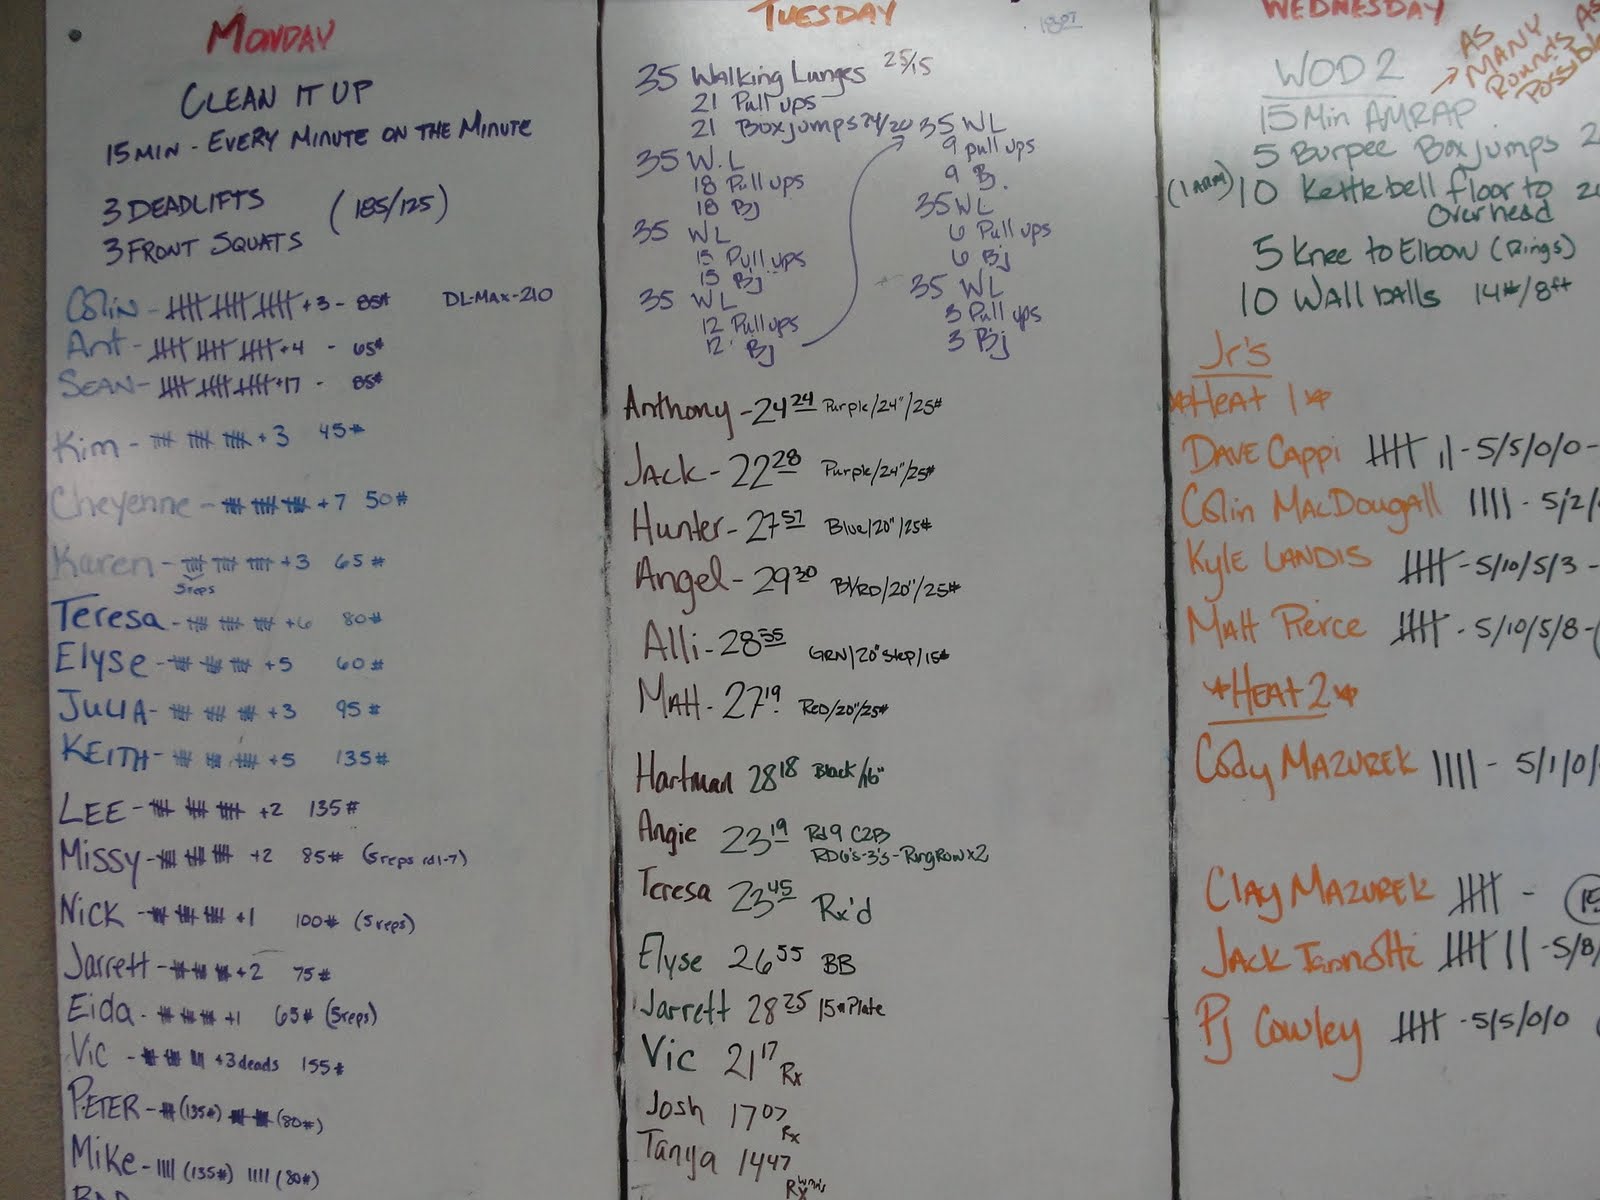 MONDAY
CLEAN IT UP
15 MIN - EVERY MINUTE ON THE MINUTE
3 DEADLIFTS (185/125)
3 FRONT SQUATS
Colin - +3 - 85# DL-MAX-210
Ant - +4 - 65#
SEAN - +17 - 85#
Kim - +3 45#
Cheyenne - +7 50#
Karen - +3 65#
5 reps
Teresa - +6 80#
Elyse - +5 60#
JULIA - +3 95#
KEITH - +5 135#
LEE - +2 135#
Missy - +2 85# (5 reps rd 1-7)
Nick - +1 100# (5 reps)
Jarrett - +2 75#
Eida - +1 65# (5 reps)
Vic - +3 deads 155#
PETER - (135#) (80#)
Mike - |||| (135#) |||| (80#)
TUESDAY
35 Walking Lunges 25/15
21 Pull ups
21 Box jumps 24/20
35 W.L
18 Pull ups
18 Bj
35 WL
15 Pull ups
15 Bj
35 WL
12 Pull ups
12 Bj
35 WL
9 pull ups
9 Bj.
35 WL
6 Pull ups
6 Bj
35 WL
3 Pull ups
3 Bj
Anthony - 24 24 Purple/24"/25#
Jack - 22 28 Purple/24"/25#
Hunter - 27 57 Blue/20"/25#
Angel - 29 30 Bl/RD/20"/25#
Alli - 28 55 GRN/20" Step/15#
Matt - 27 19 RED/20"/25#
Hartman 28 18 Black/16"
Angie 23 19 Rd 9 C2B
RD 6's-3's-Ring Row x2
Teresa 23 45 Rx'd
Elyse 26 55 BB
Jarrett 28 25 15# Plate
Vic 21 17 Rx
Josh 17 07 Rx
Tanya 14 47 Rx
WEDNESDAY
WOD 2
→ AS
MANY
Rounds AS
Possible
15 Min AMRAP
5 Burpee Box jumps
(1 ARM) 10 Kettlebell floor to
overhead
5 Knee to Elbow (Rings)
10 Wall balls 14#/8ft
Jr's
*Heat 1*
DAVE CAPPI |||| || - 5/5/0/0 -
Colin MacDougall |||| - 5/2/
Kyle LANDIS - 5/10/5/3 -
Matt Pierce - 5/10/5/8 -
*HEAT 2*
Cody MAZUREK |||| - 5/1/0/
Clay MAZUREK -
JACK || - 5/8/
PJ Cowley - 5/5/0/0